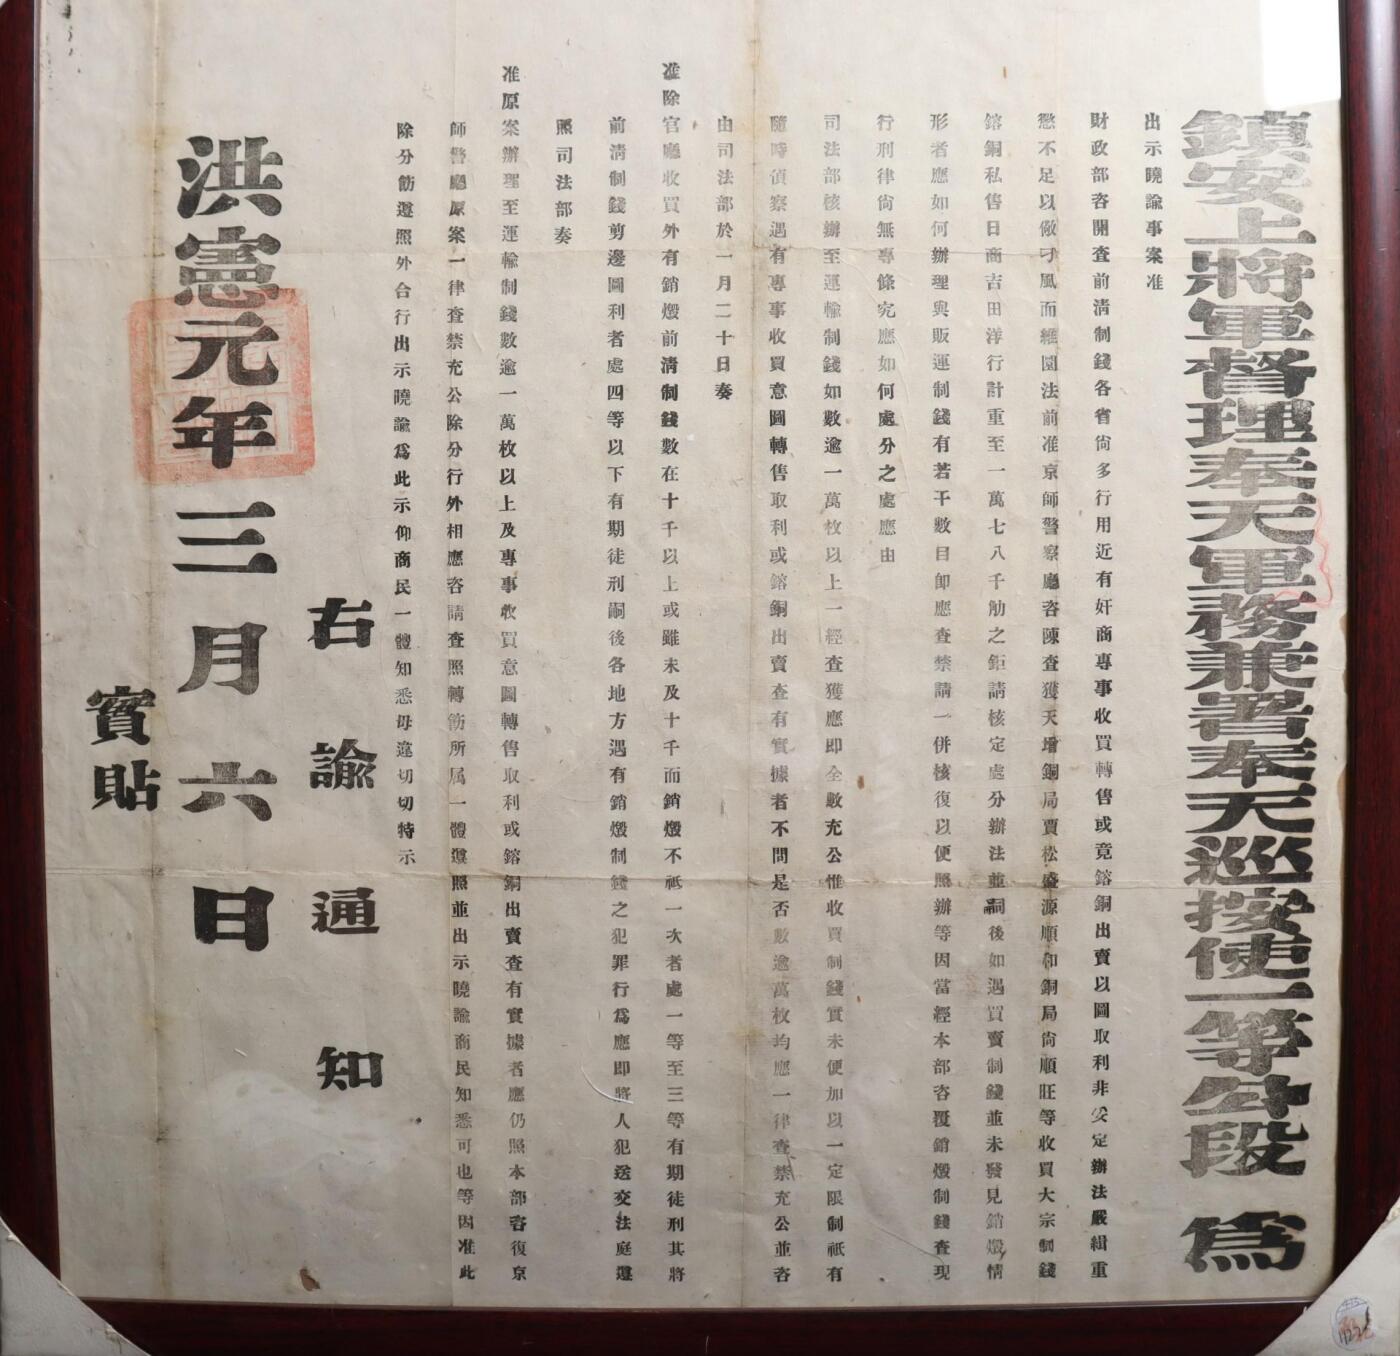 鎮安上將軍督理奉天軍務兼署奉天巡按使一等公段 爲
出示曉諭事案准
財政部咨開查前清制錢各省尙多行用近有奸商專事收買轉售或竟鎔銅出賣以圖取利非妥定辦法嚴緝重
懲不足以儆刁風而維圜法前准京師警察廳咨陳查獲天增銅局賈松盛源順和銅局尙順旺等收買大宗制錢
鎔銅私售日商吉田洋行計重至一萬七八千觔之鉅請核定處分辦法並嗣後如遇買賣制錢並未發見銷燬情
形者應如何辦理與販運制錢有若干數目卽應查禁請一併核復以便照辦等因當經本部咨覆銷燬制錢查現
行刑律尙無專條究應如何處分之處應由
司法部核辦至運輸制錢如數逾一萬枚以上一經查獲應即全數充公惟收買制錢實未便加以一定限制祇有
隨時偵察遇有專事收買意圖轉售取利或鎔銅出賣查有實據者不問是否數逾萬枚均應一律查禁充公並咨
由司法部於一月二十日奏
准除官廳收買外有銷燬前淸制錢數在十千以上或雖未及十千而銷燬不祇一次者處一等至三等有期徒刑其將
前清制錢剪邊圖利者處四等以下有期徒刑嗣後各地方遇有銷燬制錢之犯罪行爲應即將人犯送交法庭遵
照司法部奏
准原案辦理至運輸制錢數逾一萬枚以上及專事收買意圖轉售取利或鎔銅出賣查有實據者應仍照本部咨復京
師警廳原案一律查禁充公除分行外相應咨請查照轉飭所属一體遵照並出示曉諭商民知悉可也等因准此
除分飭遵照外合行出示曉諭爲此示仰商民一體知悉毋違切切特示
右諭通知
洪憲元年三月六日
實貼